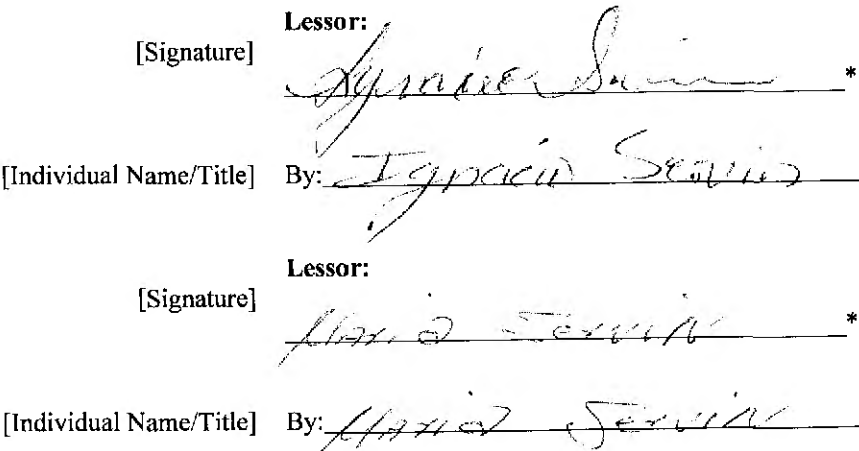 Lessor:
[Signature] Ignacio Servin *
[Individual Name/Title] By: Ignacio Servin
Lessor:
[Signature] Maria Servin *
[Individual Name/Title] By: Maria Servin